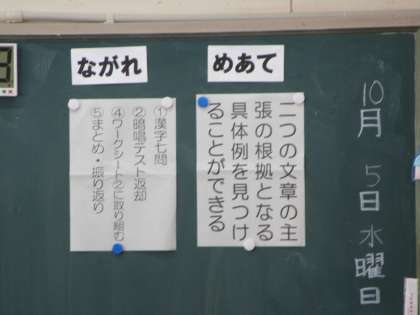 10月5日水曜日
めあて
二つの文章の主
張の根拠となる
具体例を見つけ
ることができる
ながれ
①漢字七問
②暗唱テスト返却
④ワークシート②に取り組む
⑤まとめ・振り返り